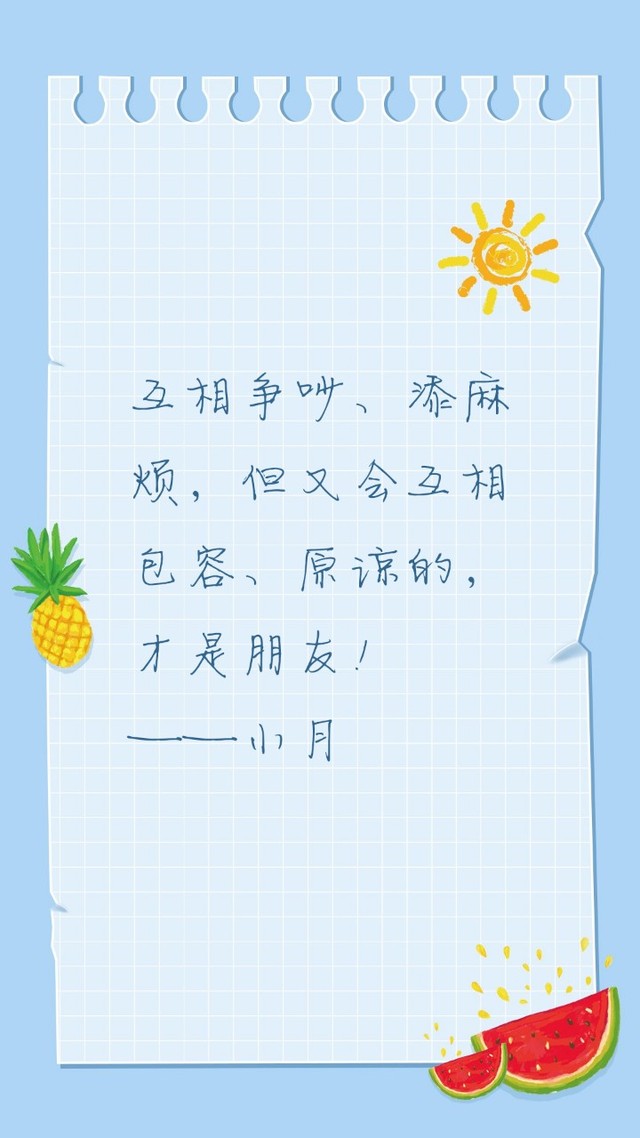 互相争吵、添麻
烦，但又会互相
包容、原谅的，
才是朋友！
——小月